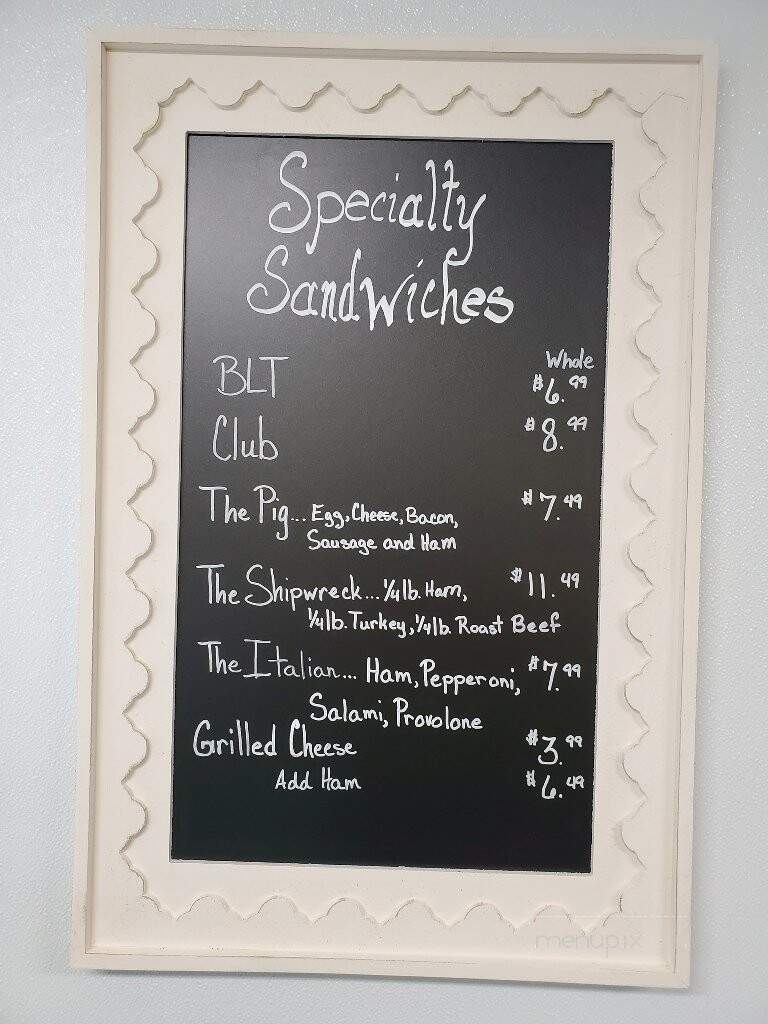 Specialty
Sandwiches
Whole
BLT $6.99
Club $8.99
The Pig... Egg, Cheese, Bacon, $7.49
Sausage and Ham
The Shipwreck... 1/4 lb. Ham, $11.49
1/4 lb. Turkey, 1/4 lb. Roast Beef
The Italian... Ham, Pepperoni, $7.99
Salami, Provolone
Grilled Cheese $3.99
Add Ham $6.49
menupix